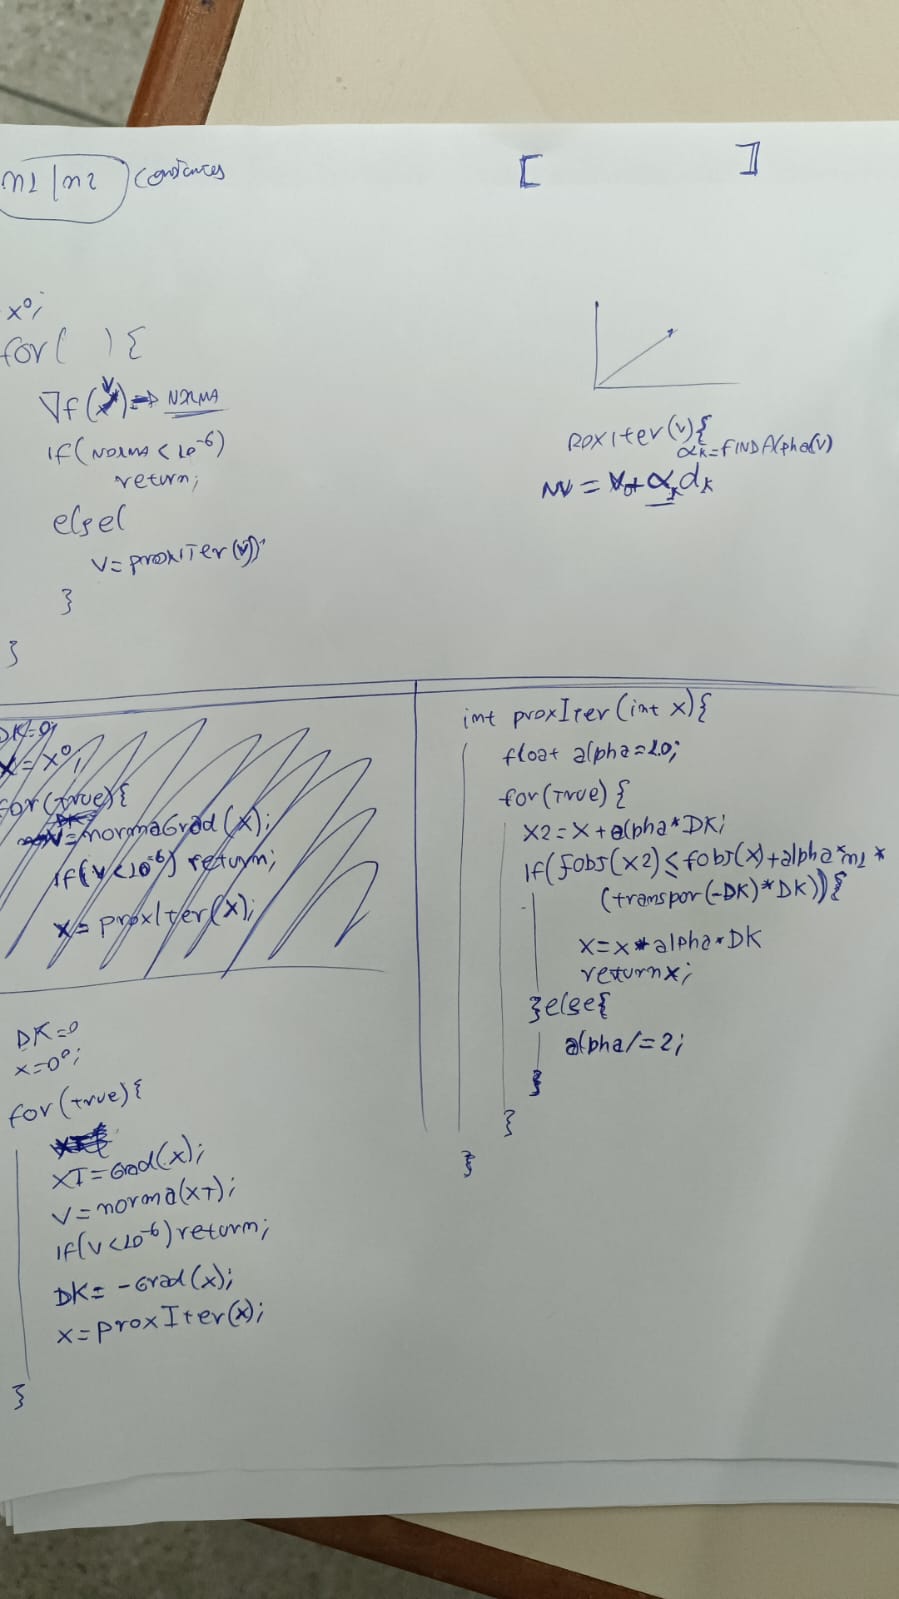 m1 | m2 constantes
[ ]
x⁰;
for( ) {
∇f(v) => NORMA
if(NORMA < 10⁻⁶)
return;
else{
v=proxITer(v)
}
}
ROXIter(v){
αk=FINDAlpha(v)
= v+ αk dk
DK=0;
X=X⁰;
for(true){
V=normaGrad(x);
if(v<10⁻⁶) return;
x=proxIter(x);
DK=0
x=0⁰;
for(true){
XT=Grad(x);
V=norma(XT);
if(v<10⁻⁶)return;
DK= -Grad(x);
x=proxIter(x);
}
int proxIter(int x){
float alpha=1.0;
for(True) {
X2=X+alpha*DK;
if(fobj(x2)≤fobj(x)+alpha*m1*
(transpor(-DK)*DK)){
x=x*alpha*DK
return x;
}else{
alpha/=2;
}
}
}